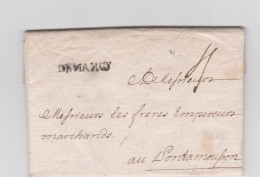 DENANCY
A Messieurs
Messieurs les freres Empereur
marchands
au Pontamousson